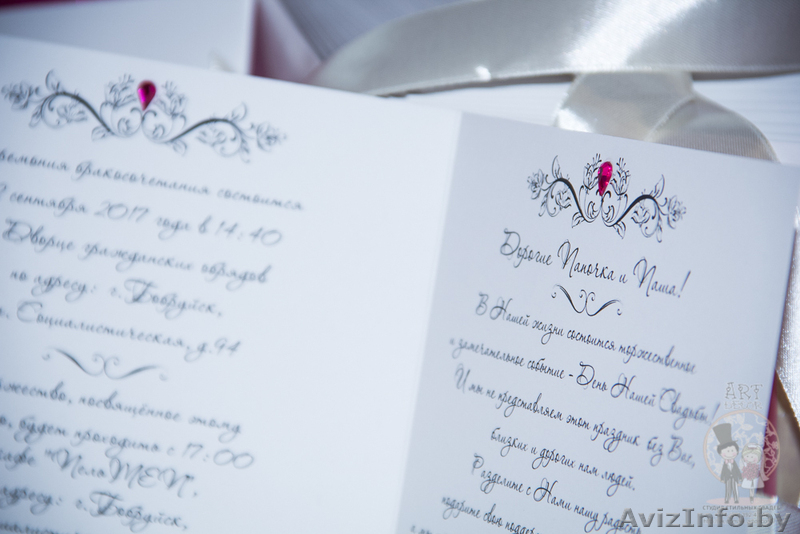 ремония бракосочетания состоится
сентября 2017 года в 14:40
Дворце гражданских обрядов
по адресу: г.Бобруйск,
Социалистическая, д.94
жество, посвящённое этому
будет проходить с 17:00
кафе "ПельМЕН",
адресу: г. Бобруйск,
Дорогие Папочка и Паша!
В Нашей жизни состоится торжественное
и замечательное событие - День Нашей Свадьбы!
И мы не представляем этот праздник без Вас,
близких и дорогих нам людей.
Разделите с Нами нашу радость
подарите свою поддер
ART
AvizInfo.by